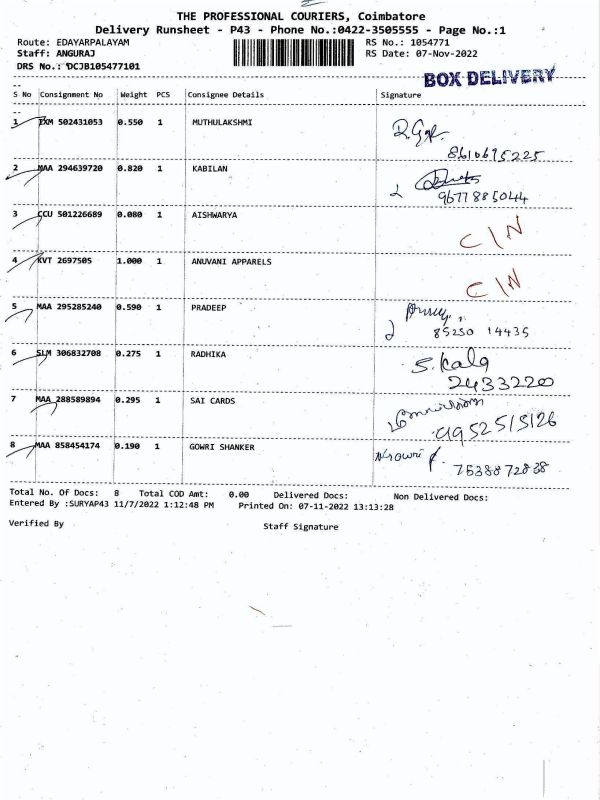 THE PROFESSIONAL COURIERS, Coimbatore
Delivery Runsheet - P43 - Phone No.:0422-3505555 - Page No.:1
Route: EDAYARPALAYAM RS No.: 1054771
Staff: ANGURAJ RS Date: 07-Nov-2022
DRS No.: DCJB105477101
BOX DELIVERY
S No Consignment No Weight PCS Consignee Details Signature
1 IXM 502431053 0.550 1 MUTHULAKSHMI
8610695225
2 MAA 294639720 0.820 1 KABILAN
9677885044
3 CCU 501226689 0.080 1 AISHWARYA C/N
4 KVT 2697505 1.000 1 ANUVANI APPARELS
C/N
5 MAA 295285240 0.590 1 PRADEEP
85250 14435
6 SLM 306832708 0.275 1 RADHIKA S. Kala
2433220
7 MAA 288589894 0.295 1 SAI CARDS
9952515126
8 MAA 858454174 0.190 1 GOWRI SHANKER
7638872838
Total No. Of Docs: 8 Total COD Amt: 0.00 Delivered Docs: Non Delivered Docs:
Entered By :SURYAP43 11/7/2022 1:12:48 PM Printed On: 07-11-2022 13:13:28
Verified By Staff Signature